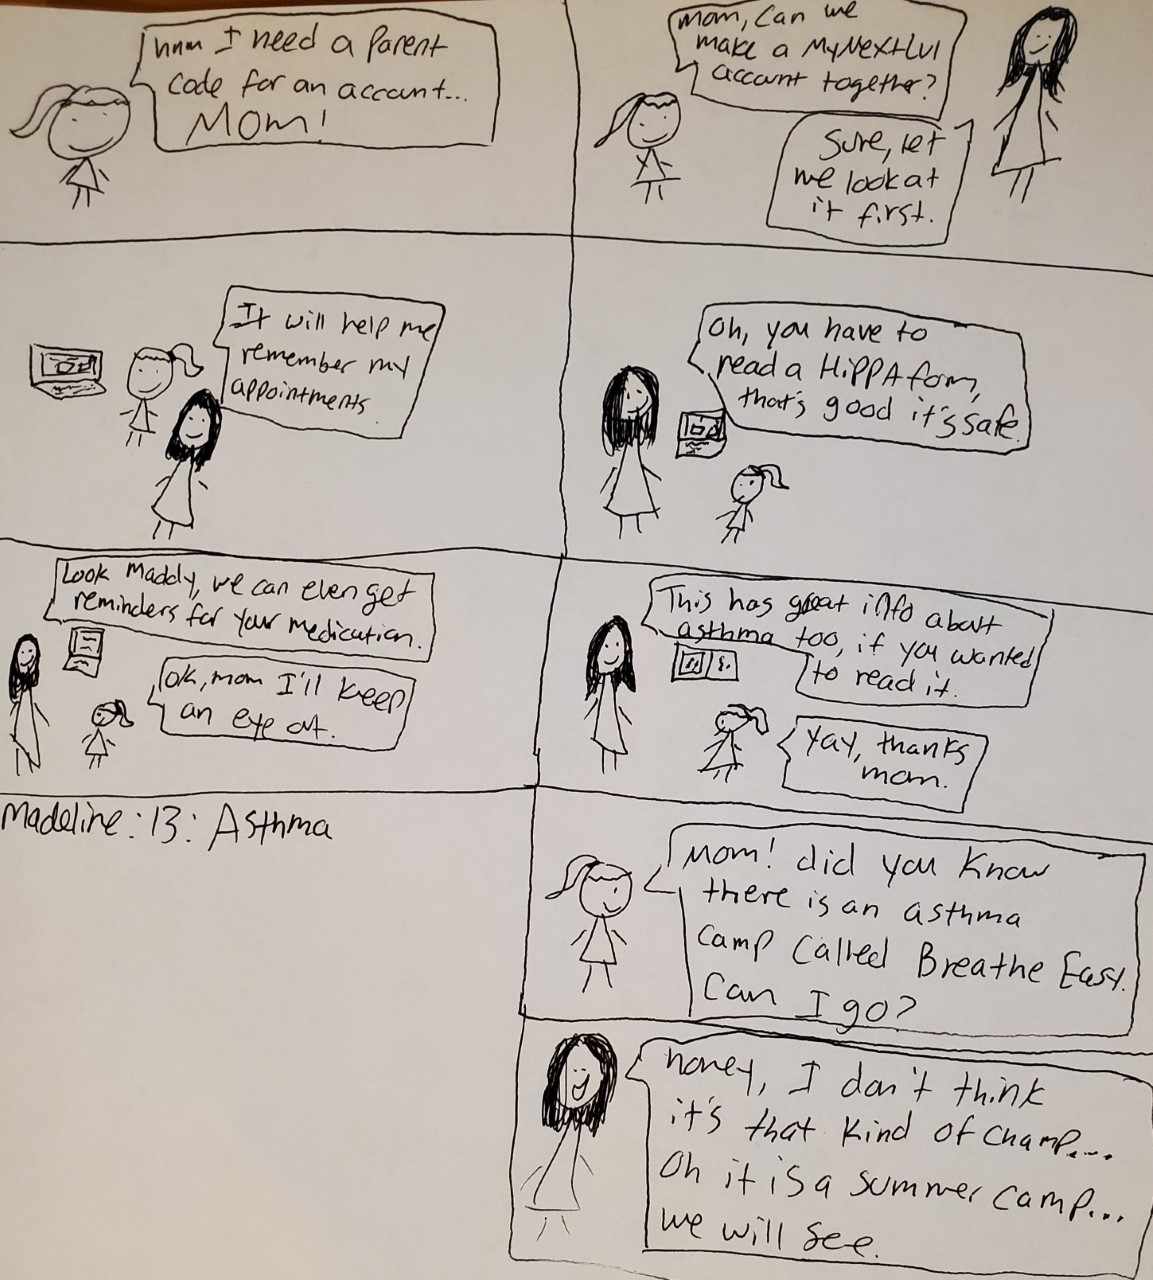 hmm I need a parent
code for an account...
MOM!
mom, can we
make a MyNextLvl
account together?
Sure, let
me look at
it first.
It will help me
remember my
appointments
Oh, you have to
read a HiPPA form,
that's good it's safe.
Look Maddy, we can even get
reminders for your medication.
OK, mom I'll keep
an eye out.
This has great info about
asthma too, if you wanted
to read it.
Yay, thanks
mom.
Madeline: 13: Asthma
Mom! did you know
there is an asthma
camp called Breathe Easy.
Can I go?
honey, I don't think
it's that kind of champ....
Oh it is a summer camp...
we will see.